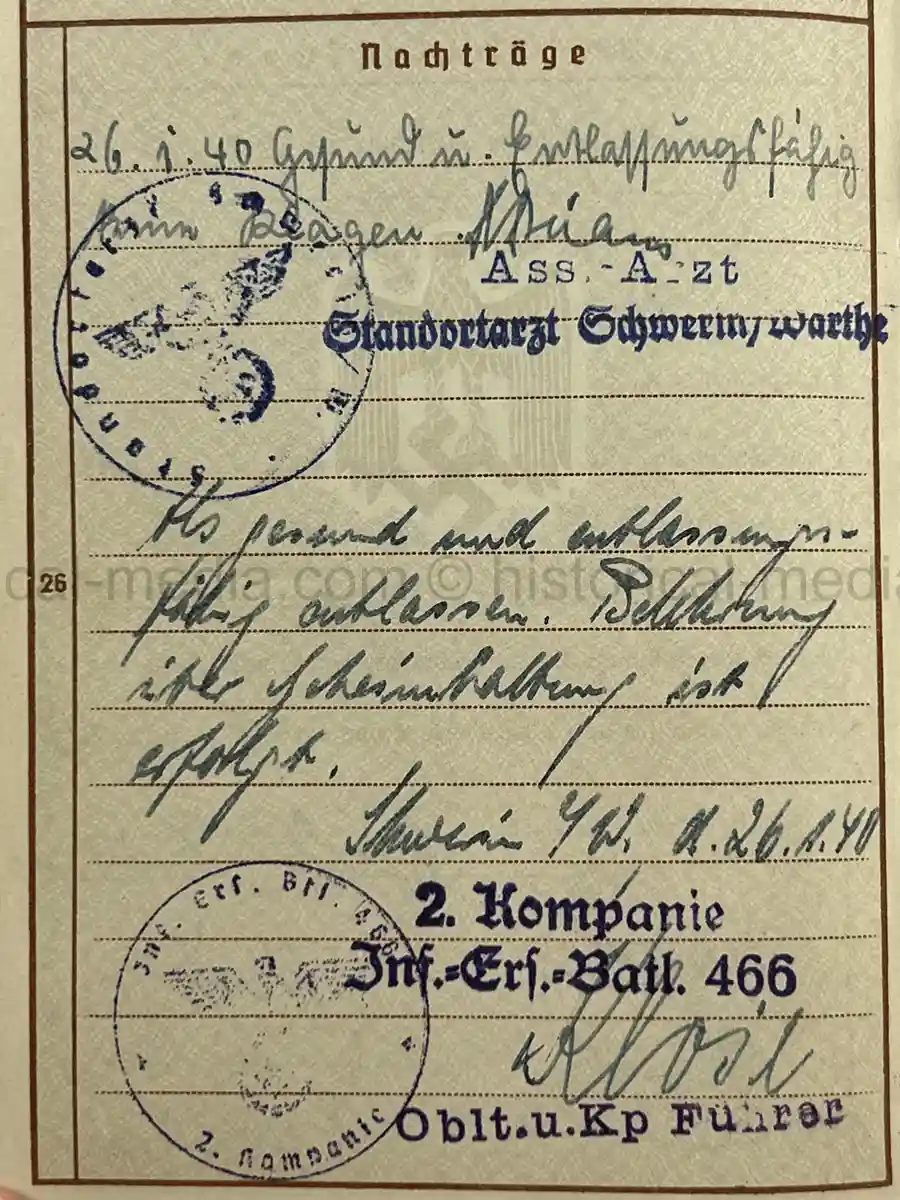 Nachträge
26.1.40 Gesund u. Entlassungsfähig
keine Klagen
Ass.-Arzt
Standortarzt Schwerin/Warthe
Standortarzt Schwerin / W.
Als gesund und entlassungs-
fähig entlassen. Belehrung
26
cal-media.com © historical-media
über Geheimhaltung ist
erfolgt.
Schwerin /W. d. 26.1.40
2. Kompanie
Inf.-Ers.-Batl. 466
Inf. Ers. Btl. 466
2. Kompanie
Oblt.u.Kp Führer